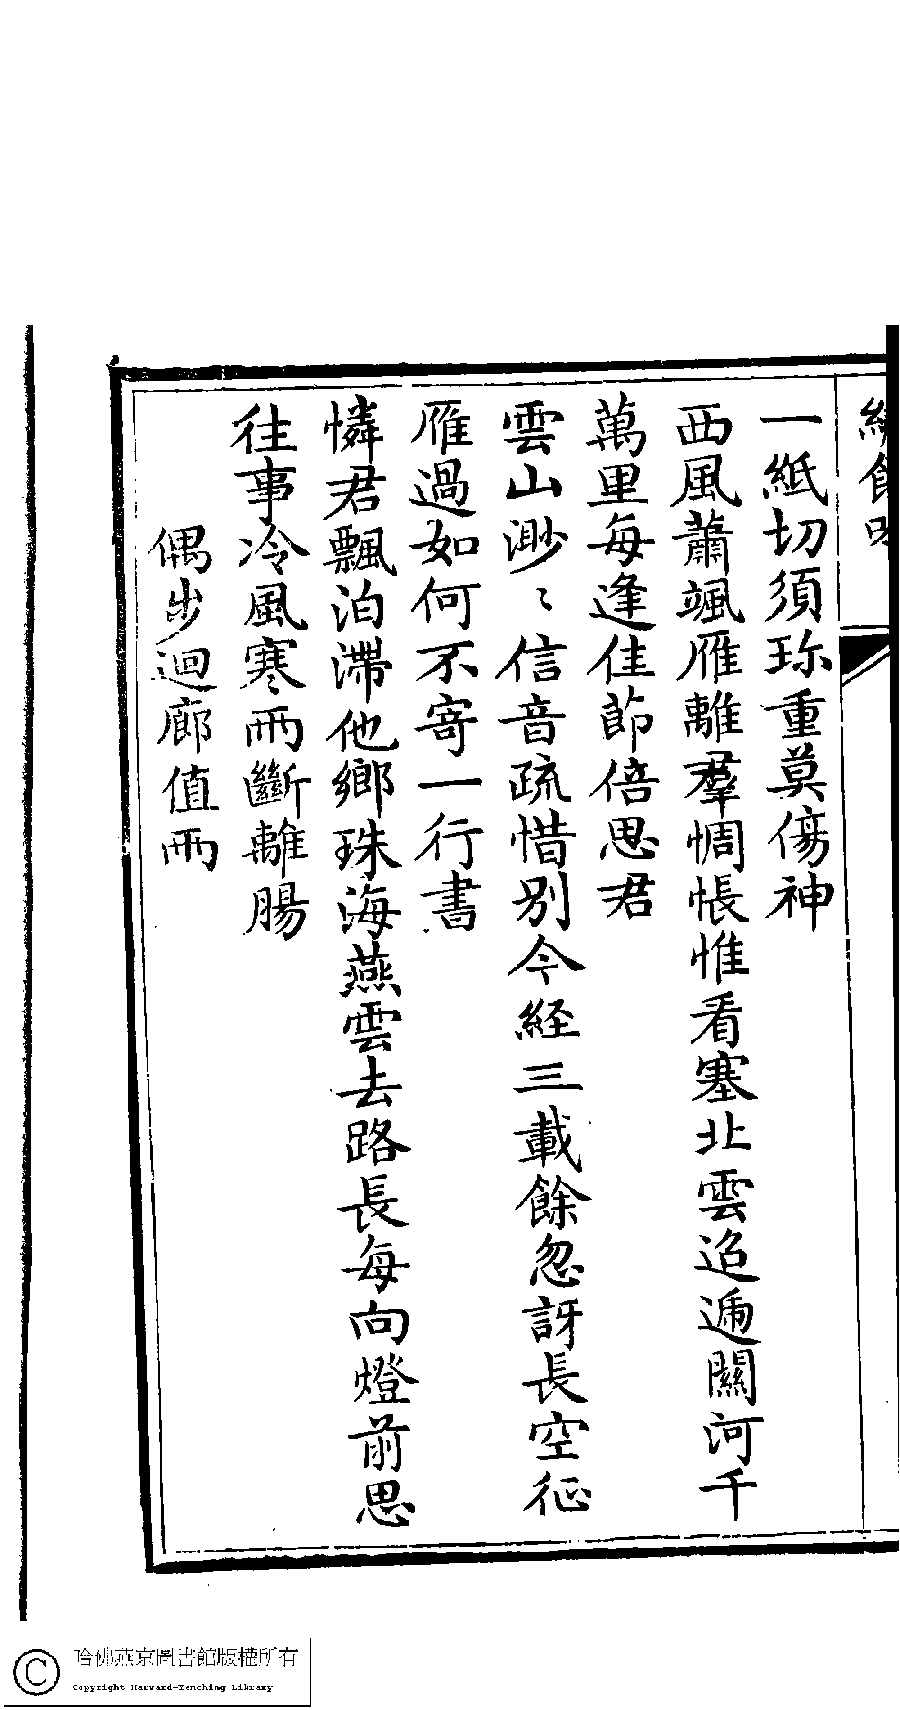 一紙切須珎重莫傷神
西風蕭颯雁離羣惆悵惟看塞北雲迢遞關河千
萬里每逢佳節倍思君
雲山渺〻信音疏惜別今經三載餘忽訝長空征
雁過如何不寄一行書
憐君飄泊滯他鄉珠海燕雲去路長每向燈前思
往事冷風寒雨斷離腸
偶步迴廊值雨
哈佛燕京圖書館版權所有
Copyright Harvard-Yenching Library